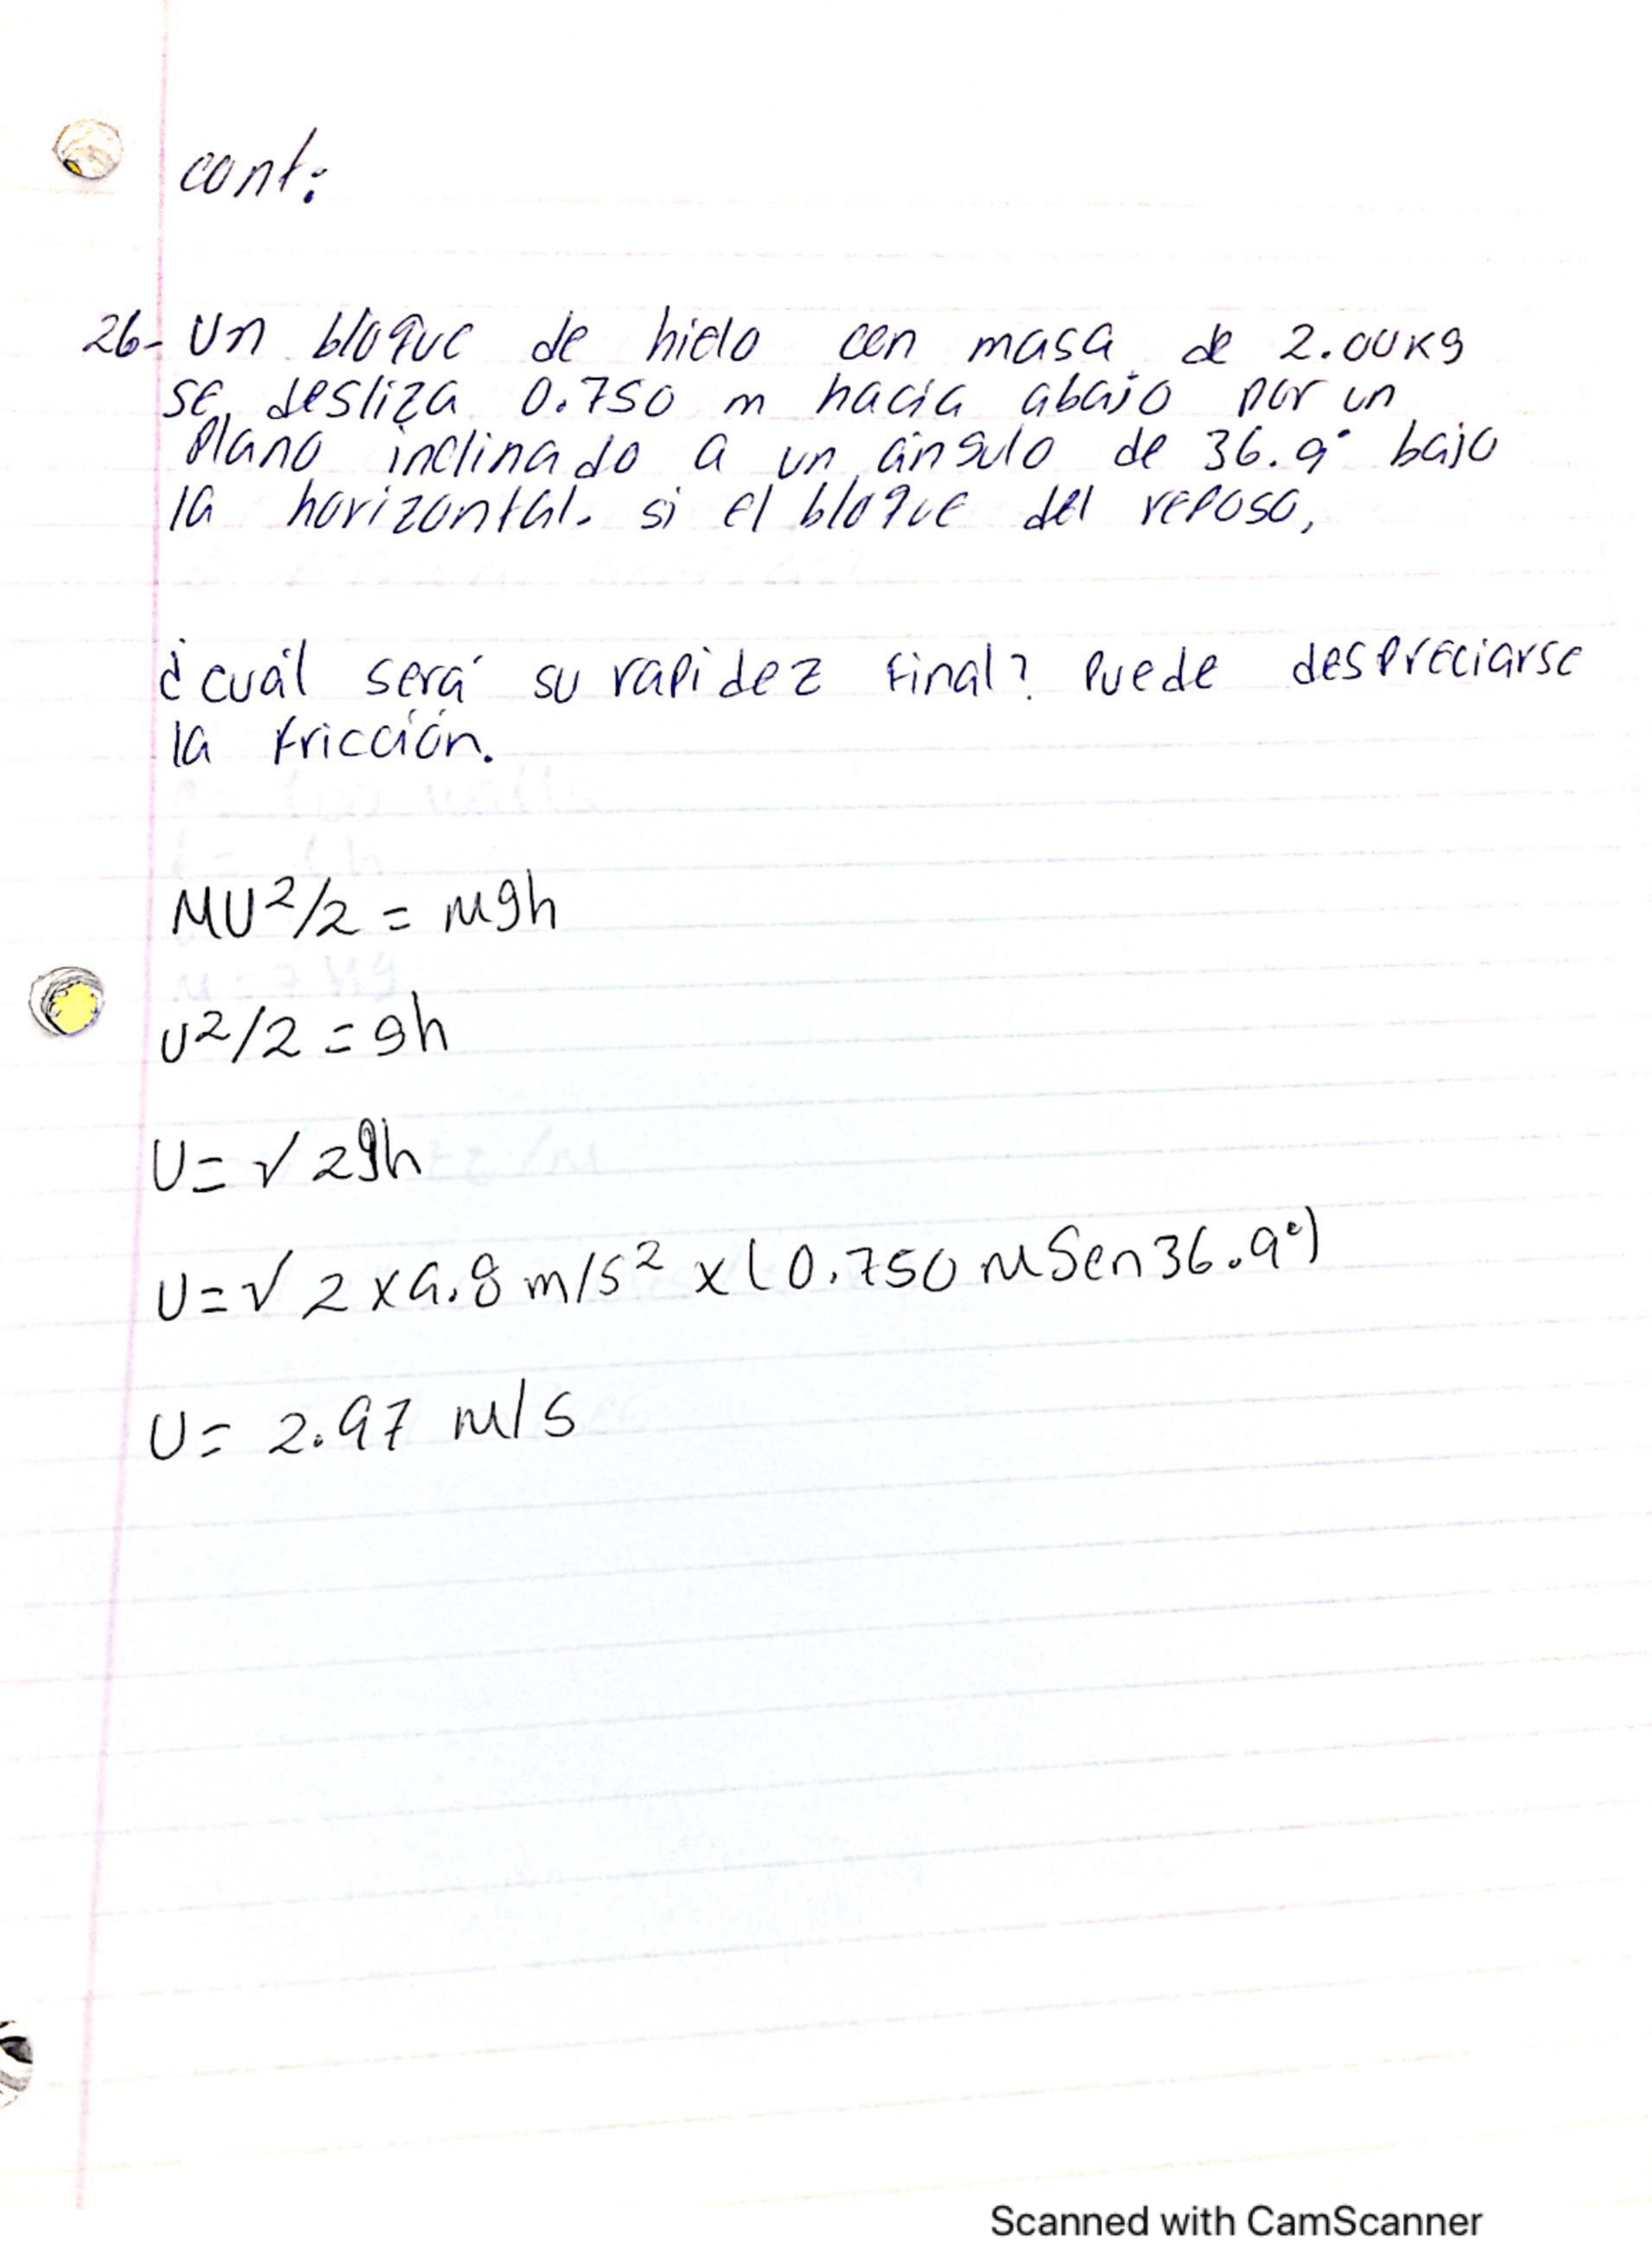 cont:
26- Un bloque de hielo con masa de 2.00 Kg
se desliza 0.750 m hacia abajo por un
plano inclinado a un ángulo de 36.9° bajo
la horizontal. si el bloque del reposo,
¿cuál será su rapidez final? Puede despreciarse
la fricción.
MU²/2 = Mgh
U²/2 = gh
U = √2gh
U = √2 x 9.8 m/s² x (0.750 M Sen 36.9°)
U = 2.97 M/S
Scanned with CamScanner